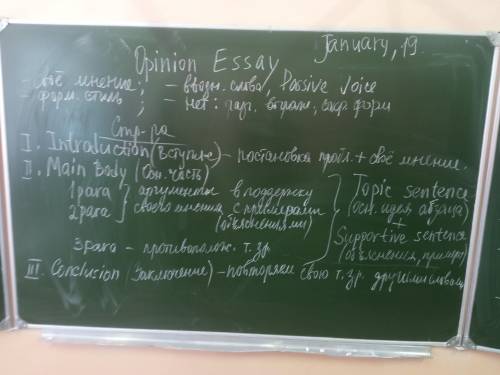 January, 19.
Opinion Essay
- своё мнение; - вводн. слова, Passive Voice
- форм. стиль ; - нет: разг. выраж., сокр. форм
Стр-ра
I. Introduction (Вступле) - постановка пробл. + своё мнение.
II. Main Body (Осн. часть)
1 para } аргументы в поддержку
2 para } своего мнения с примерами
(объяснениями)
Topic sentence
(осн. идея абзаца)
+
Supportive sentence
(объяснения, пример)
3 para - противополож. т. зр.
III Conclusion (Заключение) - повторяем свою т. зр. другими словами